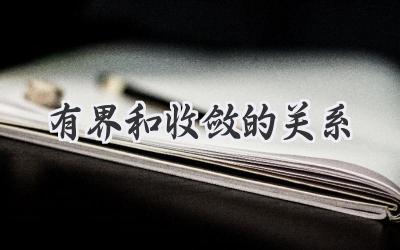 有界和收敛的关系